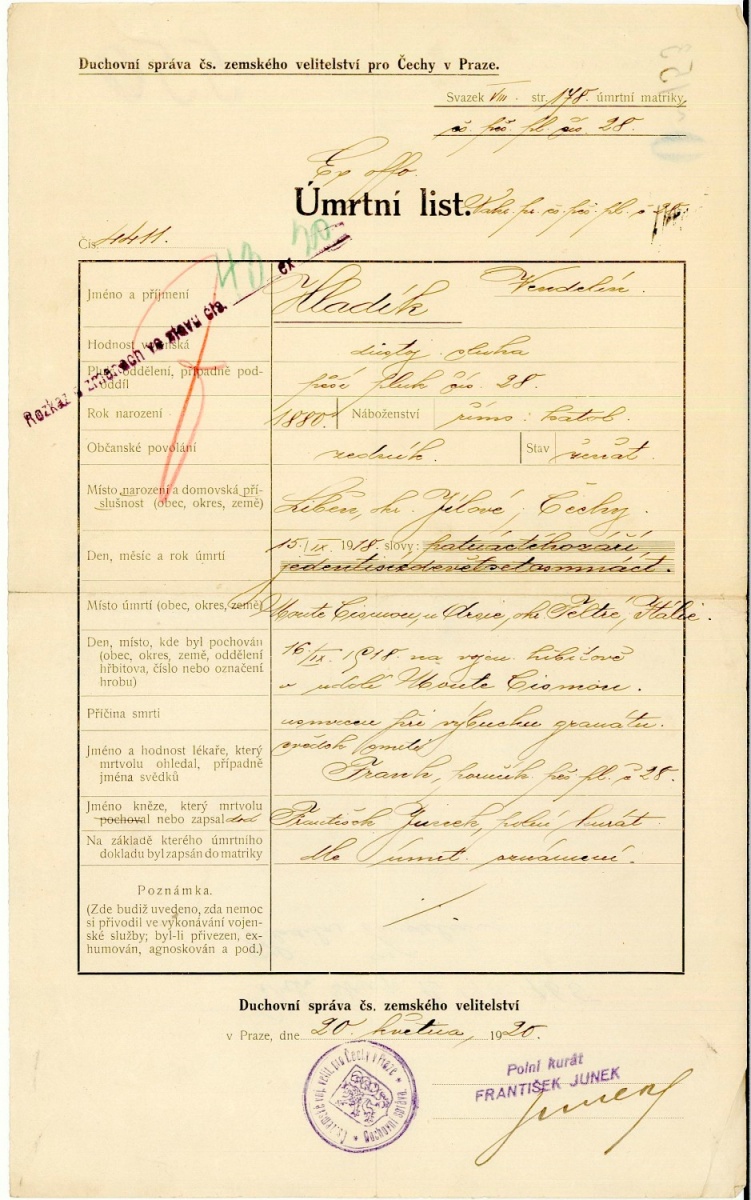 Duchovní správa čs. zemského velitelství pro Čechy v Praze.
Svazek VIII. str. 178. úmrtní matriky
čs. pěš. pl. čís. 28.
Ex offo.
Úmrtní list.
Čís. 4411.
43 20
Rozkaz o změnách ve stavu čís. ex
Jméno a příjmení Hladík Vendelín.
Hodnost vojenská důstoj. sluha
Pluk, oddělení, případně pod-
oddíl pěší pluk čís. 28.
Rok narození 1880. Náboženství řím: katol.
Občanské povolání zedník. Stav ženat.
Místo narození a domovská pří-
slušnost (obec, okres, země) Libeň, okr. Jílové, Čechy.
Den, měsíc a rok úmrtí 15./IX. 1918. slovy: patnáctého září
jedentisícdevětsetosmnáct.
Místo úmrtí (obec, okres, země) Monte Cismon, u Arsie, okr. Feltre, Itálie.
Den, místo, kde byl pochován
(obec, okres, země, oddělení
hřbitova, číslo nebo označení
hrobu) 16./IX. 1918. na vojen. hřbitově
v údolí Monte Cismon.
Příčina smrti usmrcen při výbuchu granátu.
Jméno a hodnost lékaře, který
mrtvolu ohledal, případně
jména svědků svědek smrti
Frank, poručík pěš. pl. č. 28.
Jméno kněze, který mrtvolu
pochoval nebo zapsal František Junek, polní kurát.
Na základě kterého úmrtního
dokladu byl zapsán do matriky dle úmrt. oznámení.
Poznámka.
(Zde budiž uvedeno, zda nemoc
si přivodil ve vykonávání vojen-
ské služby; byl-li přivezen, ex-
humován, agnoskován a pod.) ./.
Duchovní správa čs. zemského velitelství
v Praze, dne 20. května, 1920.
Polní kurát
FRANTIŠEK JUNEK
Junek